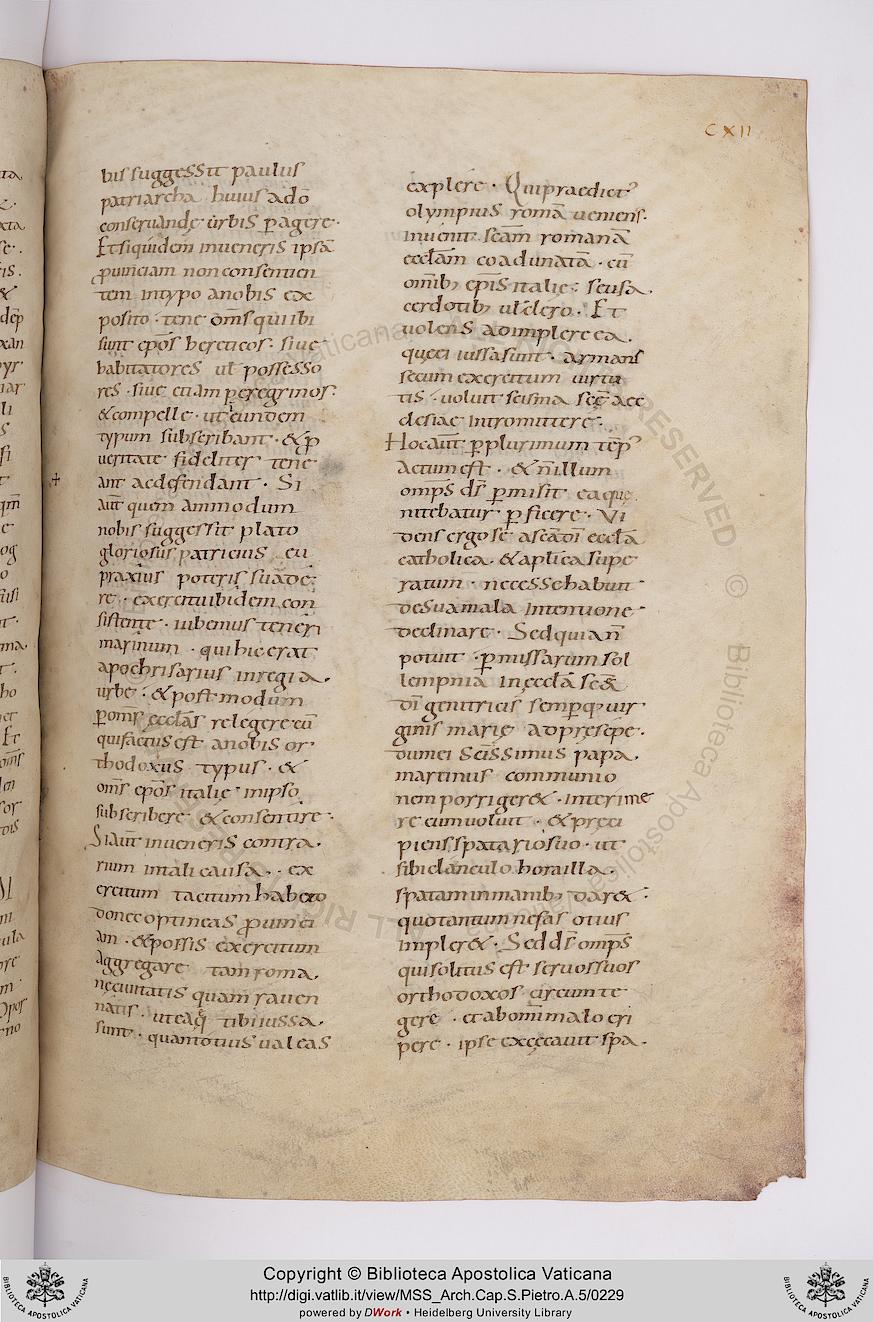 CXII
bis suggessit paulus
patriarcha huius adō
conseruande urbis p̱agere·
Et siquidem inueneris ipsā
ꝓuinciam non consentien
tem in typo a nobis ex
posito· tene om̄s qui ibi
sunt ep̄os hereticos· siue
habitatores ul̄ possesso
res· siue etiam peregrinos·
& compelle· ut eundem
typum subscribant· & p̱
ueritate fideliter tene
ant ac defendant· Si
aut̄ quem ammodum
nobis suggessit plato
gloriosus patricius eu
praxius poteris suade
re· exercitu ibidem con
sistente· iubemus teneri
marinum· qui hic erat
apochrisarius in regia·
urbe· & postmodum
p̱ om̄s eccl̄as relegere eū
qui factus est a nobis or
thodoxus typus· &
om̄s ep̄os italie in ipso
subscribere & consentire·
Si aut̄ inueneris contra·
rium in tali causa· ex
ercitum tacitum habeto
donec optineas ꝓuinci
am· & possis exercitum
aggregare tam roma·
ne ciuitatis quam rauen
natis· ut ea q̄ tibi iussa·
sunt· quantotius ualeas
explere· Qui praedict᾽
olympius romā ueniens·
inuenit sc̄am romanā
eccl̄am coadunatā· cū
omib; ep̄is italie· seu sa·
cerdotib; ul̄ clero· Et
uolens adimplere ea·
quae ei iussa sunt· armans
secum exercitum uirtu
tis· uoluit scisma sc̄e aec
clesiae intromittere·
Hoc aut̄ p̱ plurimum tēp᾽
actum est· & n̄ illum
omp̄s d̄s p̱misit ea que
nitebatur p̱ficere· Vi
dens ergo se a sc̄a dī eccl̄a
catholica· & apl̄ica supe
ratum· necesse habuit
de sua mala intentione·
declinare· Sed quia n̄
potuit· p̱ missarum sol
lempnia in eccl̄a sc̄e &
dī genitricis semperq; uir
ginis marie ad presepe·
dum ei sc̄issimus papa·
martinus communio
nem porriger&· interime
re eum uoluit· & preci
piens spatario suo· ut
sibi clanculo hora illa·
spatam in manib; dar&·
quo tantum nefas otius
impler&· Sed d̄s omp̄s
qui solitus est seruos suos
orthodoxos circumte
gere· et ab omī malo eri
pere· ipse excęcauit spa·
Copyright © Biblioteca Apostolica Vaticana
http://digi.vatlib.it/view/MSS_Arch.Cap.S.Pietro.A.5/0229
powered by DWork • Heidelberg University Library